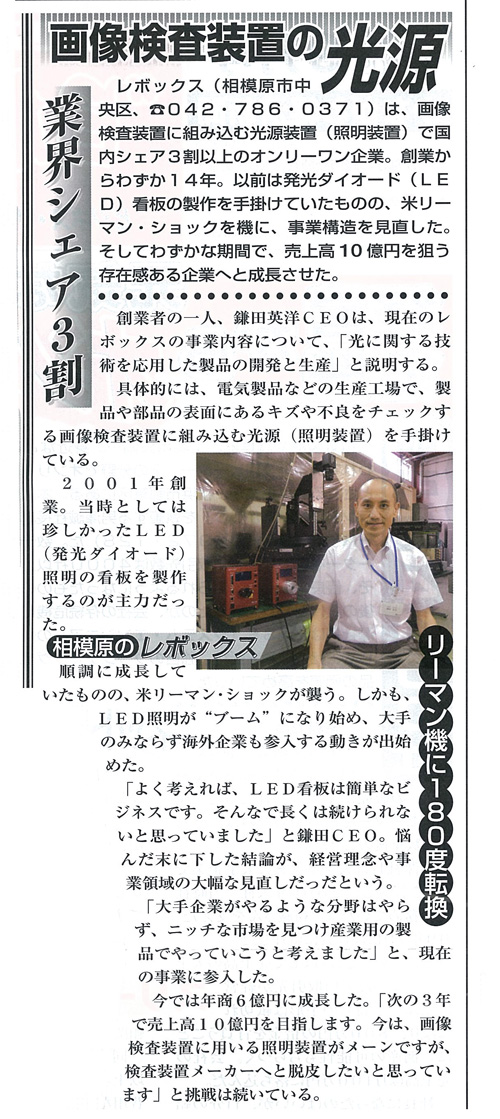 画像検査装置の光源
業界シェア3割
レボックス（相模原市中
央区、☎042・786・0371）は、画像
検査装置に組み込む光源装置（照明装置）で国
内シェア3割以上のオンリーワン企業。創業か
らわずか14年。以前は発光ダイオード（LE
D）看板の製作を手掛けていたものの、米リー
マン・ショックを機に、事業構造を見直した。
そしてわずかな期間で、売上高10億円を狙う
存在感ある企業へと成長させた。
創業者の一人、鎌田英洋CEOは、現在のレ
ボックスの事業内容について、「光に関する技
術を応用した製品の開発と生産」と説明する。
具体的には、電気製品などの生産工場で、製
品や部品の表面にあるキズや不良をチェックす
る画像検査装置に組み込む光源（照明装置）を手掛け
ている。
2001年創
業。当時としては
珍しかったLED
（発光ダイオード）
照明の看板を製作
するのが主力だっ
た。
相模原のレボックス
リーマン機に180度転換
順調に成長して
いたものの、米リーマン・ショックが襲う。しかも、
LED照明が“ブーム”になり始め、大手
のみならず海外企業も参入する動きが出始
めた。
「よく考えれば、LED看板は簡単なビ
ジネスです。そんなで長くは続けられな
いと思っていました」と鎌田CEO。悩
んだ末に下した結論が、経営理念や事
業領域の大幅な見直しだっだという。
「大手企業がやるような分野はやら
ず、ニッチな市場を見つけ産業用の製
品でやっていこうと考えました」と、現在
の事業に参入した。
今では年商6億円に成長した。「次の3年
で売上高10億円を目指します。今は、画像
検査装置に用いる照明装置がメーンですが、
検査装置メーカーへと脱皮したいと思ってい
ます」と挑戦は続いている。